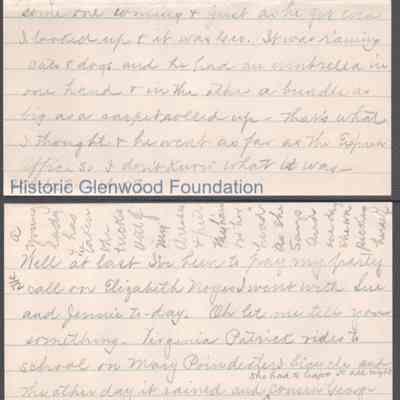 some one coming & just as he got
I looked up & it was Geo. It was raining
cats & dogs and he had an umbrella in
one hand & in the other a bundle as
big as a carpet rolled up - that's what
I thought & he went as far as the Express
Office so I don't know what it was
Historic Glenwood Foundation
A young lady has taken the tucks out of my dress & her has no hood as she sings and
Well at last I've been to pay my party
call on Elizabeth Rogers went with Sue
and Jennie to-day. Oh let me tell you
something. Virginia Patrick rides to
school on Mary Poindexter's Bicycle and
she had to leave it all night
the other day it rained and cousin